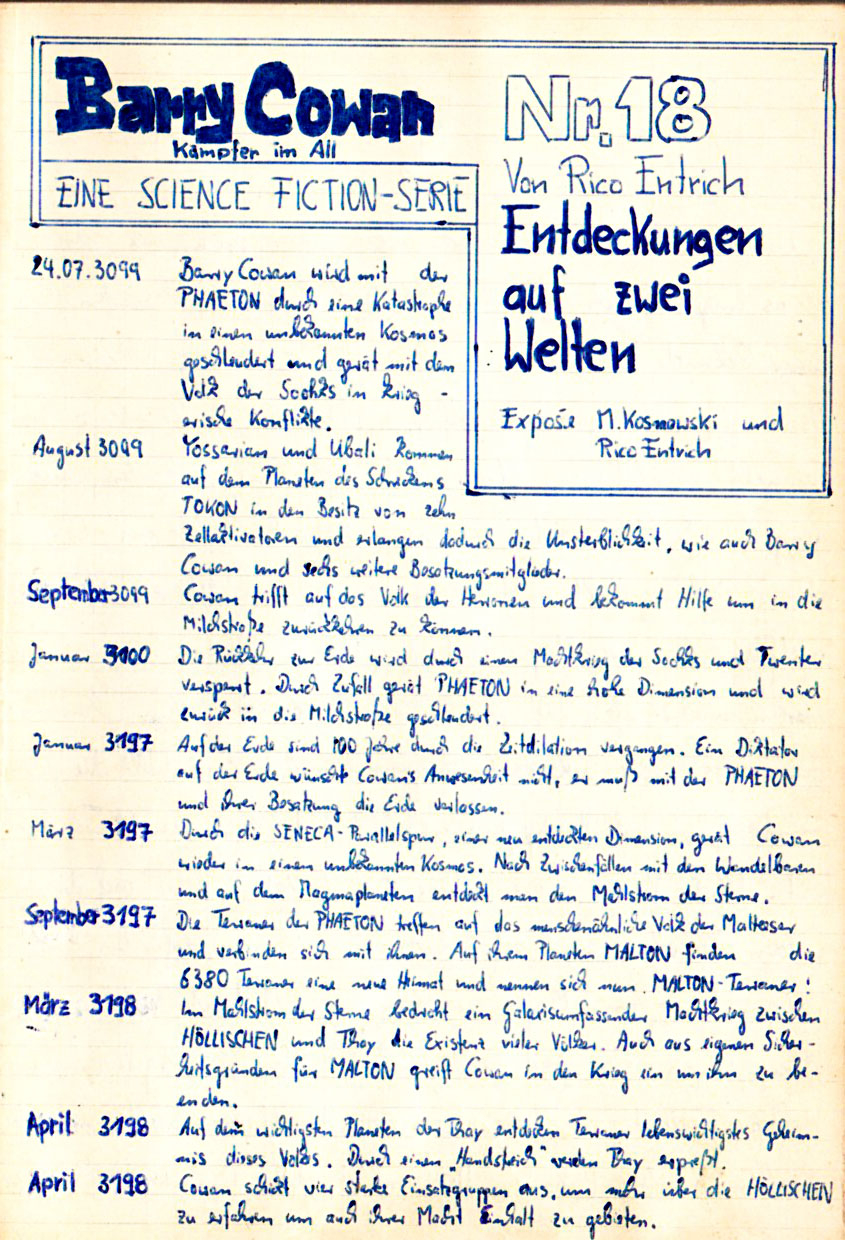 Barry Cowan
Kämpfer im All
EINE SCIENCE FICTION-SERIE
Nr. 18
Von Rico Entrich
Entdeckungen
auf zwei
Welten
Exposé M. Kosmowski und
Rico Entrich
24.07.3099 Barry Cowan wird mit der
PHAETON durch eine Katastrophe
in einen unbekannten Kosmos
geschleudert und gerät mit dem
Volk der Sochks in krieg -
erische Konflikte.
August 3099 Yossarian und Ubali kommen
auf dem Planeten des Schreckens
TOKON in den Besitz von zehn
Zellaktivatoren und erlangen dadurch die Unsterblichkeit, wie auch Barry
Cowan und sechs weitere Besatzungsmitglieder.
September 3099 Cowan trifft auf das Volk der und bekommt Hilfe um in die
Milchstraße zurückkehren zu können.
Januar 3100 Die Rückkehr zur Erde wird durch einen Machtkrieg der Sochks und Twenter
versperrt. Durch Zufall gerät PHAETON in eine hohe Dimension und wird
zurück in die Milchstraße geschleudert.
Januar 3197 Auf der Erde sind 100 Jahre durch die Zeitdilation vergangen. Ein Diktator
auf der Erde wünscht Cowan's Anwesenheit nicht, er muß mit der PHAETON
und ihrer Besatzung die Erde verlassen.
März 3197 Durch die SENECA-Parallelspur, einer neu entdeckten Dimension, gerät Cowan
wieder in einem unbekannten Kosmos. Nach Zwischenfällen mit den Wandelbaren
und auf dem Magmaplaneten entdeckt man den Mahlstrom der Sterne.
September 3197 Die Terraner der PHAETON treffen auf das menschenähnliche Volk der Malteser
und verbinden sich mit ihnen. Auf ihrem Planeten MALTON finden die
6380 Terraner eine neue Heimat und nennen sich nun MALTON-Terraner!
März 3198 Im Mahlstrom der Sterne bedroht ein Galaxisumfassender Machtkrieg zwischen
HÖLLISCHEN und Thay die Existenz vieler Völker. Auch aus eigenen Sicher-
heitsgründen für MALTON greift Cowan in den Krieg ein um ihn zu be-
enden.
April 3198 Auf dem wichtigsten Planeten der Thay entdecken Terraner lebenswichtigstes Geheim-
nis dieses Volkes. Durch einen „Handstreich" werden Thay erpreßt.
April 3198 Cowan schickt vier starke Einsatzgruppen aus, um mehr über die HÖLLISCHEN
zu erfahren um auch ihrer Macht Einhalt zu gebieten.